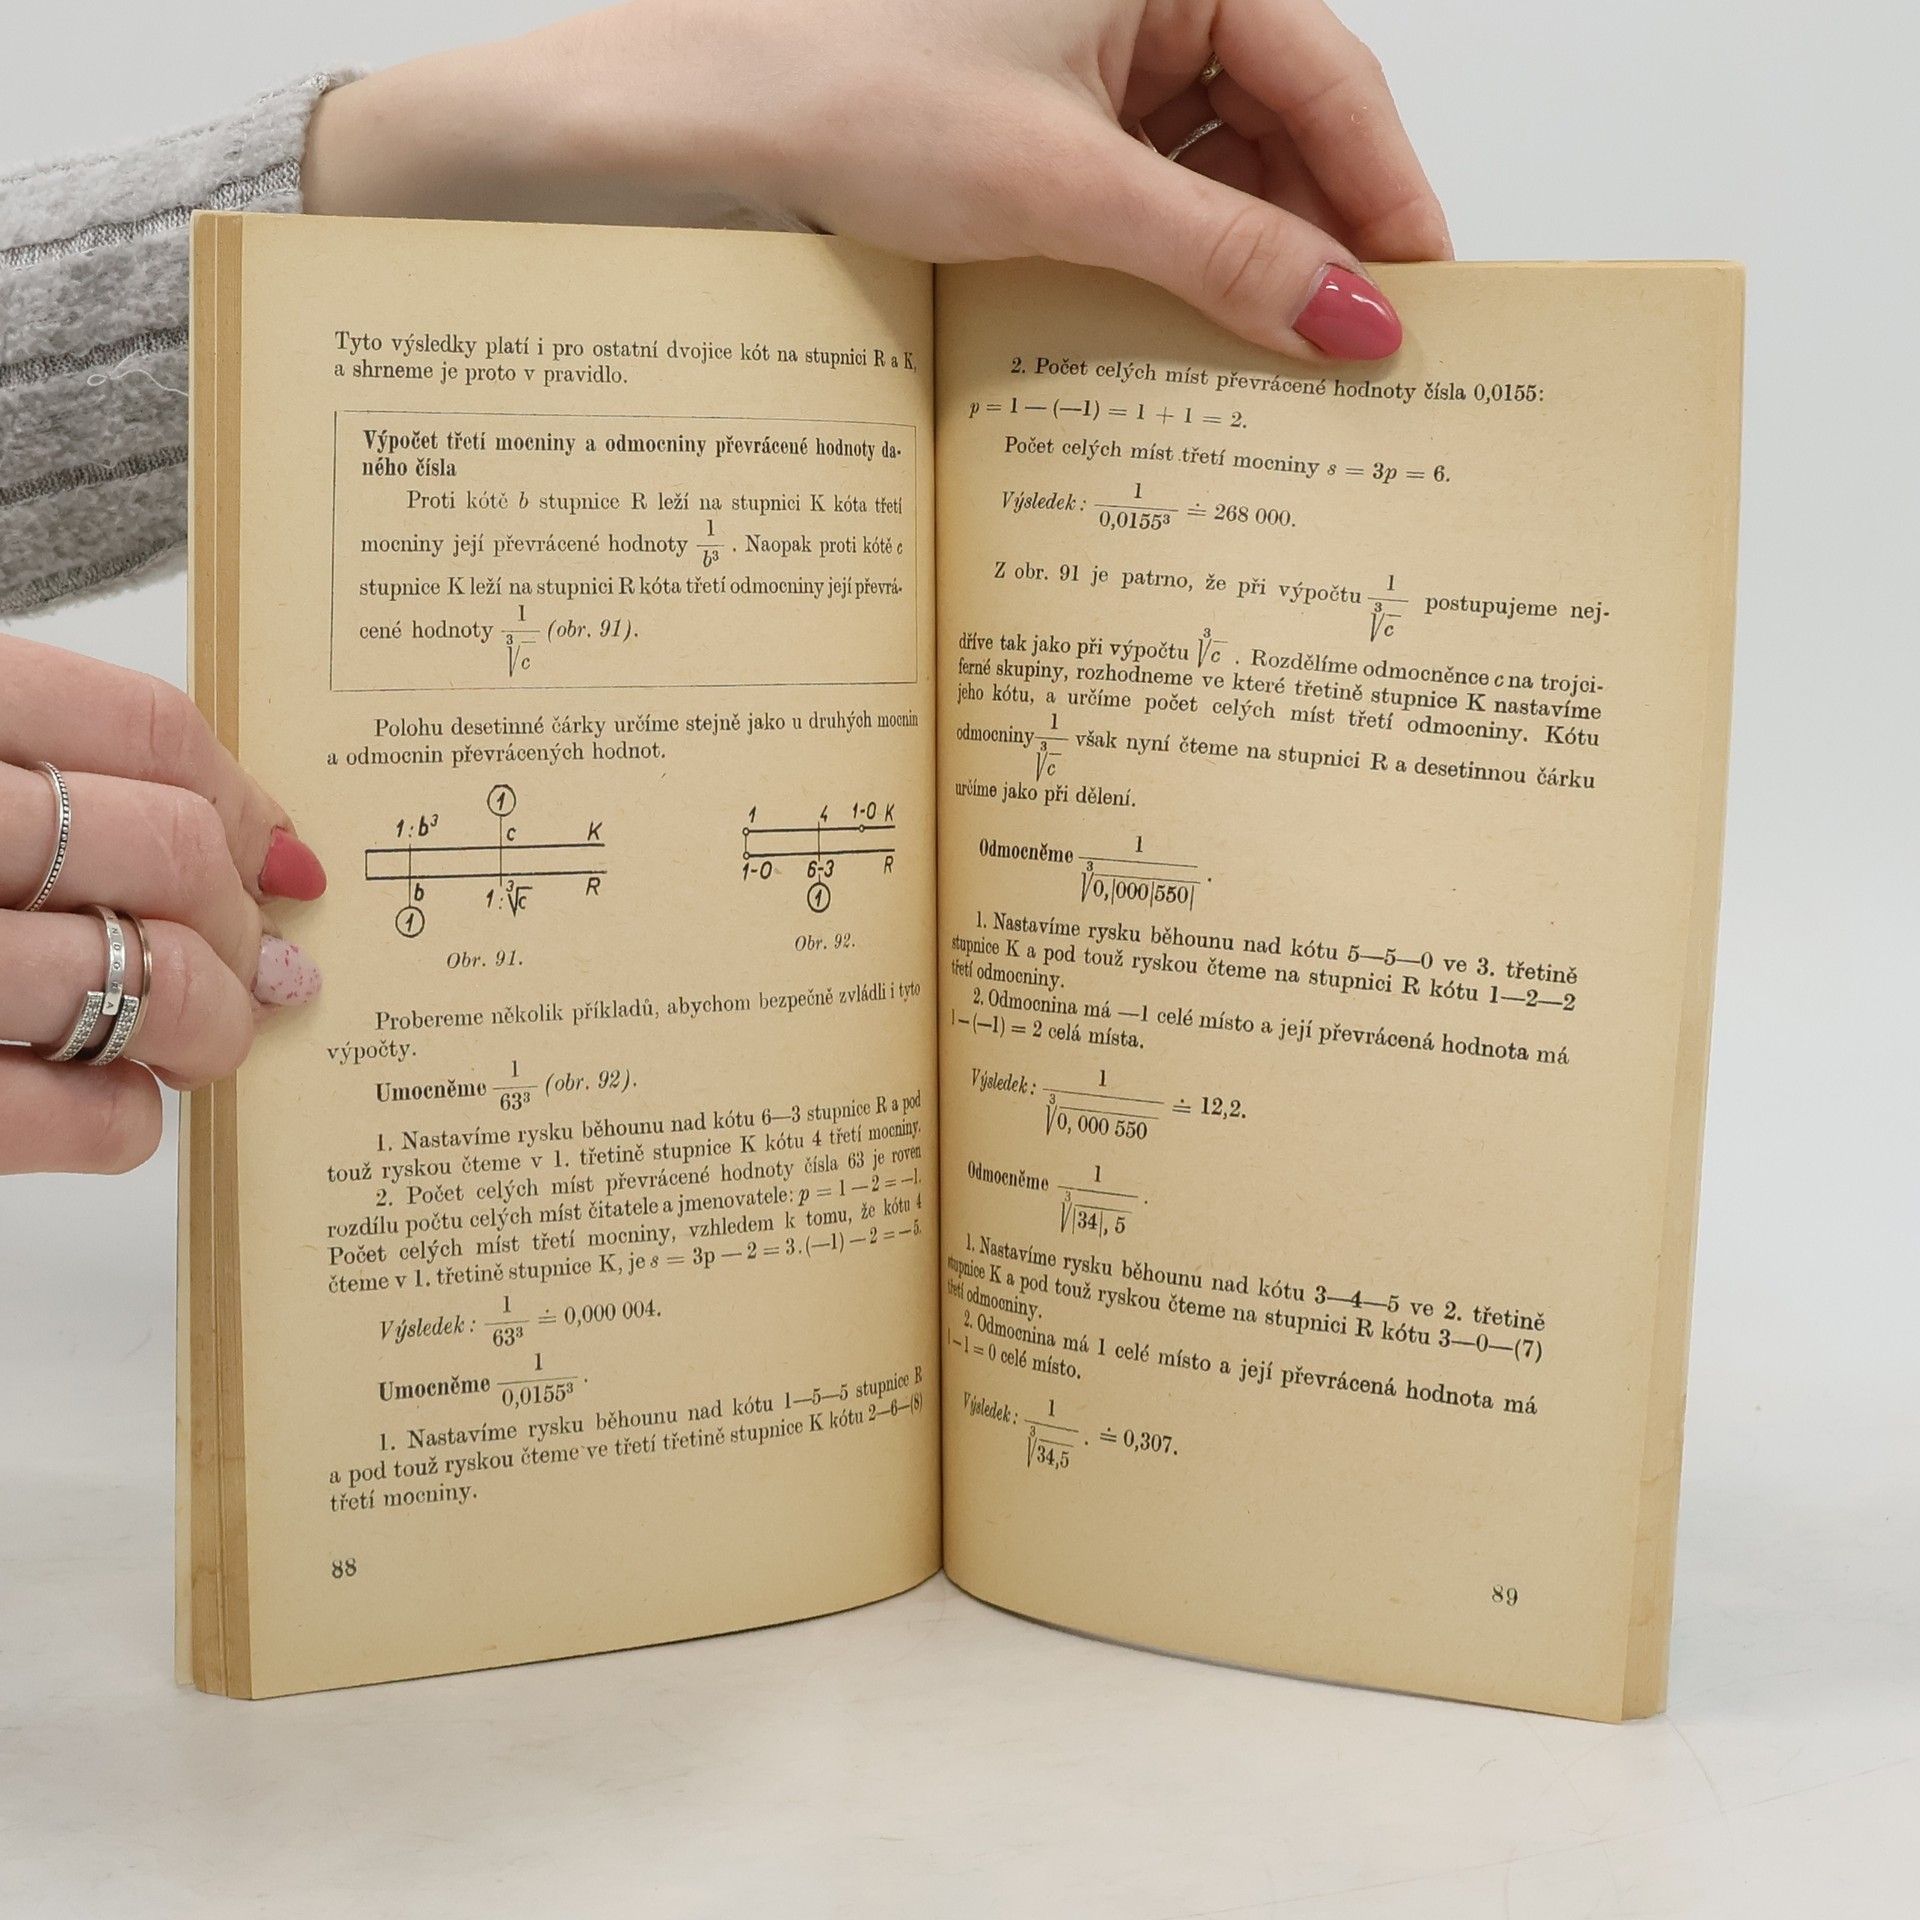 Tyto výsledky platí i pro ostatní dvojice kót na stupnici R a K,
a shrneme je proto v pravidlo.
Výpočet třetí mocniny a odmocniny převrácené hodnoty da-
ného čísla
Proti kótě b stupnice R leží na stupnici K kóta třetí
mocniny její převrácené hodnoty 1/b³. Naopak proti kótě c
stupnice K leží na stupnici R kóta třetí odmocniny její převrá-
cené hodnoty 1/∛c (obr. 91).
Polohu desetinné čárky určíme stejně jako u druhých mocnin
a odmocnin převrácených hodnot.
1
1:b³ c K
b 1:∛c R
1
Obr. 91.
1 4 1-0 K
1-0 6-3 R
1
Obr. 92.
Probereme několik příkladů, abychom bezpečně zvládli i tyto
výpočty.
Umocněme 1/63³ (obr. 92).
1. Nastavíme rysku běhounu nad kótu 6—3 stupnice R a pod
touž ryskou čteme v 1. třetině stupnice K kótu 4 třetí mocniny.
2. Počet celých míst převrácené hodnoty čísla 63 je roven
rozdílu počtu celých míst čitatele a jmenovatele: p = 1 — 2 = —1.
Počet celých míst třetí mocniny, vzhledem k tomu, že kótu 4
čteme v 1. třetině stupnice K, je s = 3p — 2 = 3.(—1) — 2 = —5.
Výsledek: 1/63³ ≐ 0,000 004.
Umocněme 1/0,0155³.
1. Nastavíme rysku běhounu nad kótu 1—5—5 stupnice R
a pod touž ryskou čteme ve třetí třetině stupnice K kótu 2—6—(8)
třetí mocniny.
88
2. Počet celých míst převrácené hodnoty čísla 0,0155:
p = 1 — (—1) = 1 + 1 = 2.
Počet celých míst třetí mocniny s = 3p = 6.
Výsledek: 1/0,0155³ ≐ 268 000.
Z obr. 91 je patrno, že při výpočtu 1/∛c postupujeme nej-
dříve tak jako při výpočtu ∛c. Rozdělíme odmocněnce c na trojci-
ferné skupiny, rozhodneme ve které třetině stupnice K nastavíme
jeho kótu, a určíme počet celých míst třetí odmocniny. Kótu
odmocniny 1/∛c však nyní čteme na stupnici R a desetinnou čárku
určíme jako při dělení.
Odmocněme 1/∛0,|000|550|.
1. Nastavíme rysku běhounu nad kótu 5—5—0 ve 3. třetině
stupnice K a pod touž ryskou čteme na stupnici R kótu 1—2—2
třetí odmocniny.
2. Odmocnina má —1 celé místo a její převrácená hodnota má
1—(—1) = 2 celá místa.
Výsledek: 1/∛0, 000 550 ≐ 12,2.
Odmocněme 1/∛|34|, 5.
1. Nastavíme rysku běhounu nad kótu 3—4—5 ve 2. třetině
stupnice K a pod touž ryskou čteme na stupnici R kótu 3—0—(7)
třetí odmocniny.
2. Odmocnina má 1 celé místo a její převrácená hodnota má
1—1 = 0 celé místo.
Výsledek: 1/∛34,5. ≐ 0,307.
89